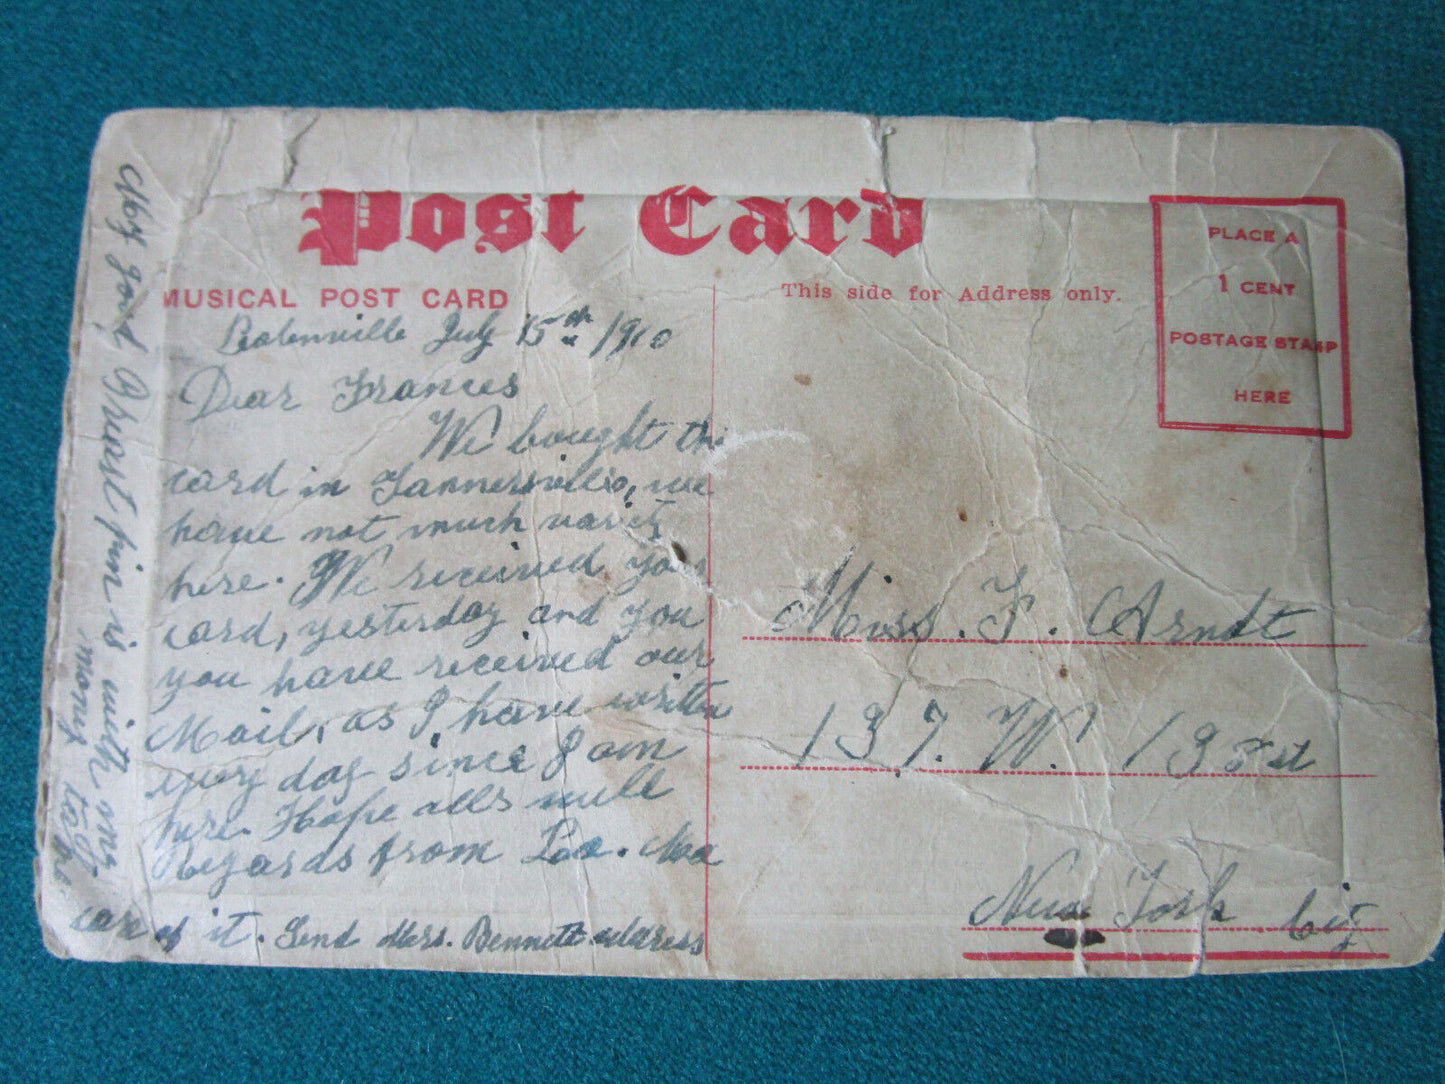 Post Card
MUSICAL POST CARD
This side for Address only.
PLACE A
1 CENT
POSTAGE STAMP
HERE
July 15th 1910
Dear Frances
We bought thi
card in Tannersville, we
have not much variety
here. We received you
card, yesterday and you
you have received our
Mail, as I have written
every day since I am
here. Hope alls well
Regards from
My gold Breast pin is with my
mony take
care of it. Send Mrs. Bennett address
Miss. F. Arndt
137. W. 13 st
New York City